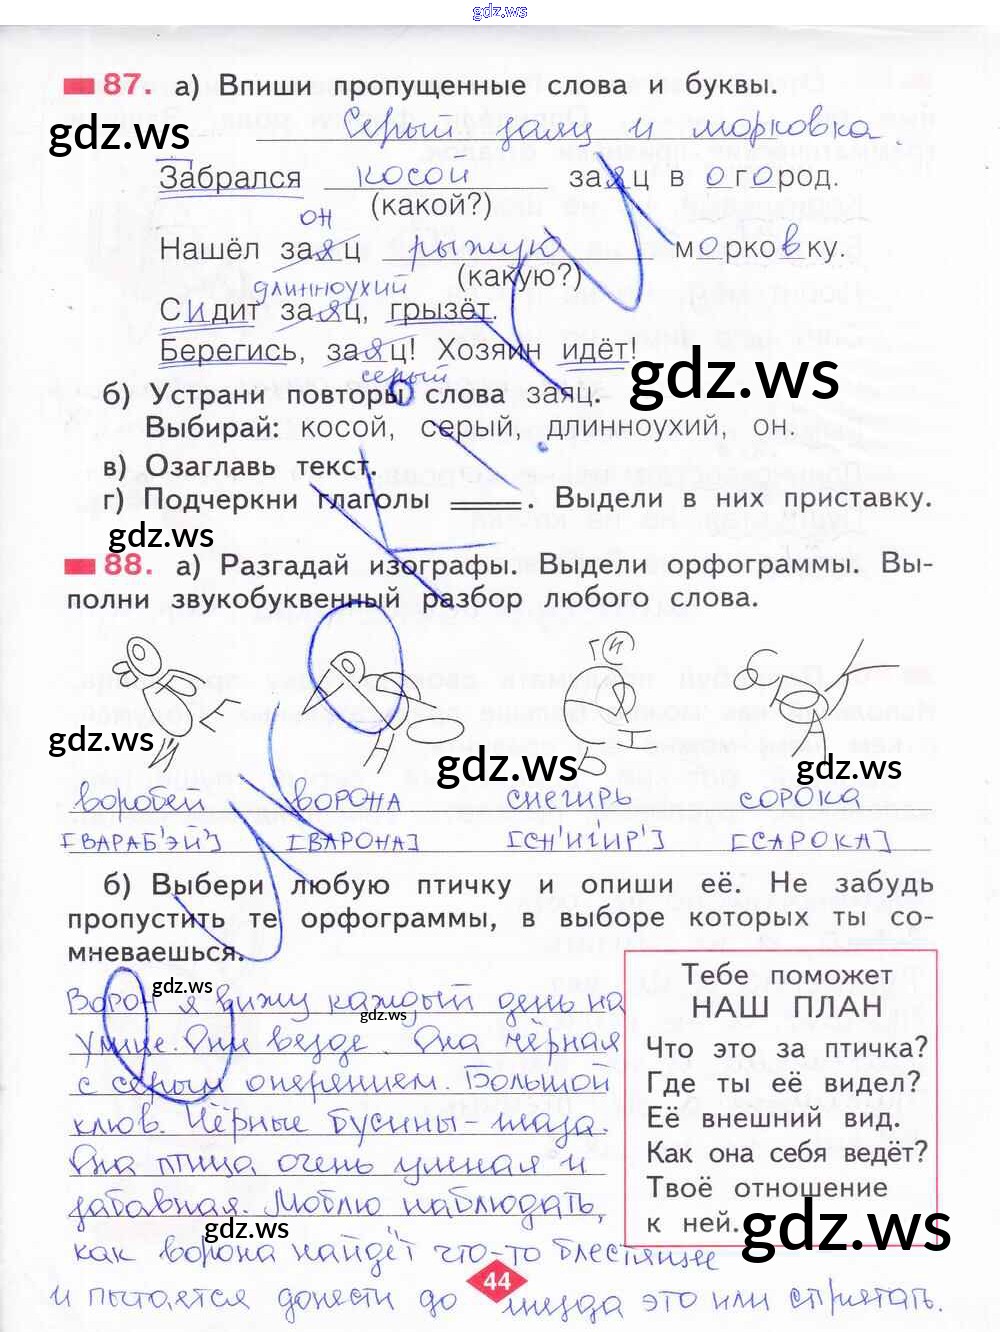 gdz.ws
87. а) Впиши пропущенные слова и буквы.
gdz.ws
Серый заяц и морковка
Забрался косой заяц в огород.
(какой?)
он
Нашёл заяц рыжую морковку.
(какую?)
длинноухий
Сидит заяц, грызёт.
Берегись, заяц! Хозяин идёт!
серый
gdz.ws
б) Устрани повторы слова заяц.
Выбирай: косой, серый, длинноухий, он.
в) Озаглавь текст.
г) Подчеркни глаголы ____. Выдели в них приставку.
gdz.ws
88. а) Разгадай изографы. Выдели орфограммы. Вы-
полни звукобуквенный разбор любого слова.
gdz.ws gdz.ws gdz.ws
воробей ворона снегирь сорока
[ВАРАБ'ЭЙ'] [ВАРОНА] [СН'ИГ'ИР'] [САРОКА]
б) Выбери любую птичку и опиши её. Не забудь
пропустить те орфограммы, в выборе которых ты со-
мневаешься.
gdz.ws
Ворон я вижу каждый день на
gdz.ws
улице. Они везде. Она чёрная
с серым оперением. Большой
клюв. Чёрные бусины-глаза.
Она птица очень умная и
забавная. Люблю наблюдать,
gdz.ws
как ворона найдёт что-то блестящее
и пытается донести до гнезда это или спрятать.
Тебе поможет
НАШ ПЛАН
Что это за птичка?
Где ты её видел?
Её внешний вид.
Как она себя ведёт?
Твоё отношение
к ней.
gdz.ws
44